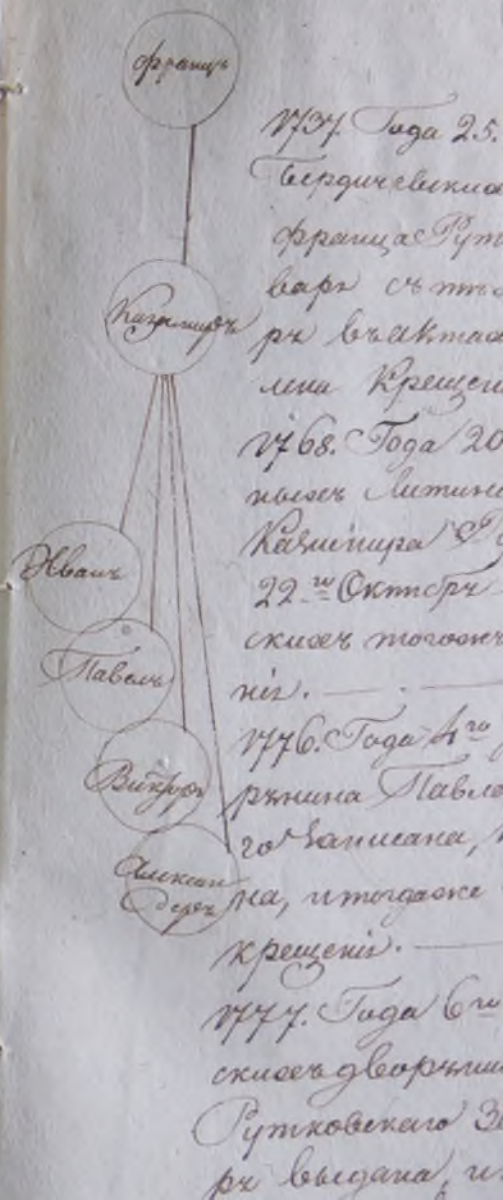 Францъ
Казимиръ
Иванъ
Павелъ
Викторъ
Алексан
деръ
1737. Года 25.
Бердичевскихъ
Франца Рутк
варь съ
ря въ Актахъ
лена Крещен
1768. Года 20
ныхъ Литин
Казимира
22го Октября
скихъ тогожъ
нія. — . —
1776. Года 4го
рянина Павла
го Записана,
на, и тогдаже
крещенія. —
1777. Года 6го
скихъ дворянин
Рутковскаго За
ря выдана, и